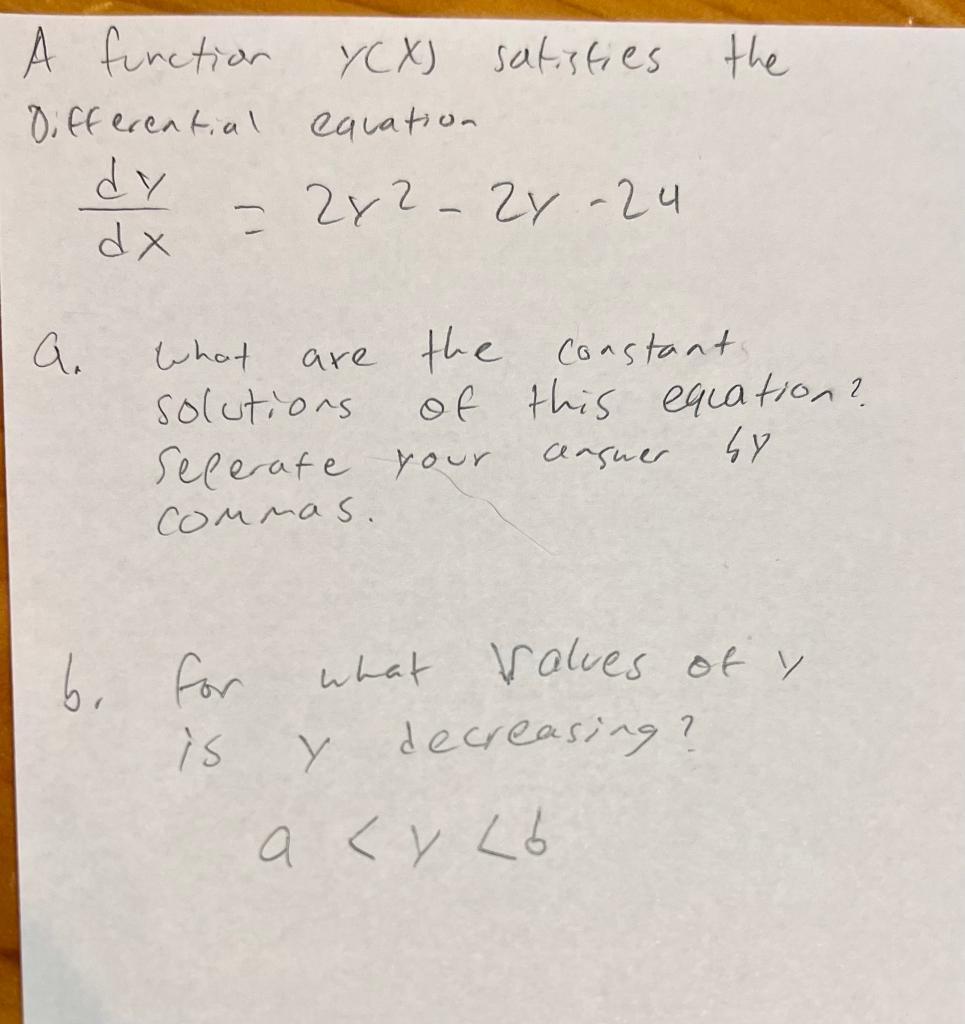 A function y(x) satisfies the
Differential equation
dy/dx = 2y² - 2y - 24
a. what are the constant
solutions of this equation?
Seperate your answer by
commas.
b. for what values of y
is y decreasing?
a < y < b